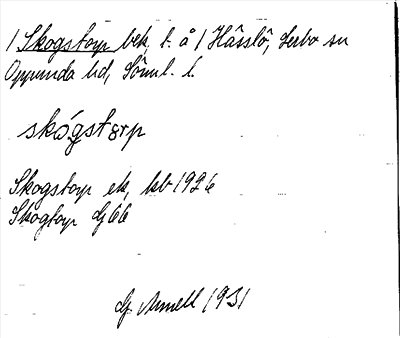 / Skogstorp bek, l. å / Hårslö, Lerbo sn
Oppunda hd, Söml. l.
skógstɔrp
Skogstorp ek, kb 1926
Skogtorp Gj 66
Gj. Arnell 1931